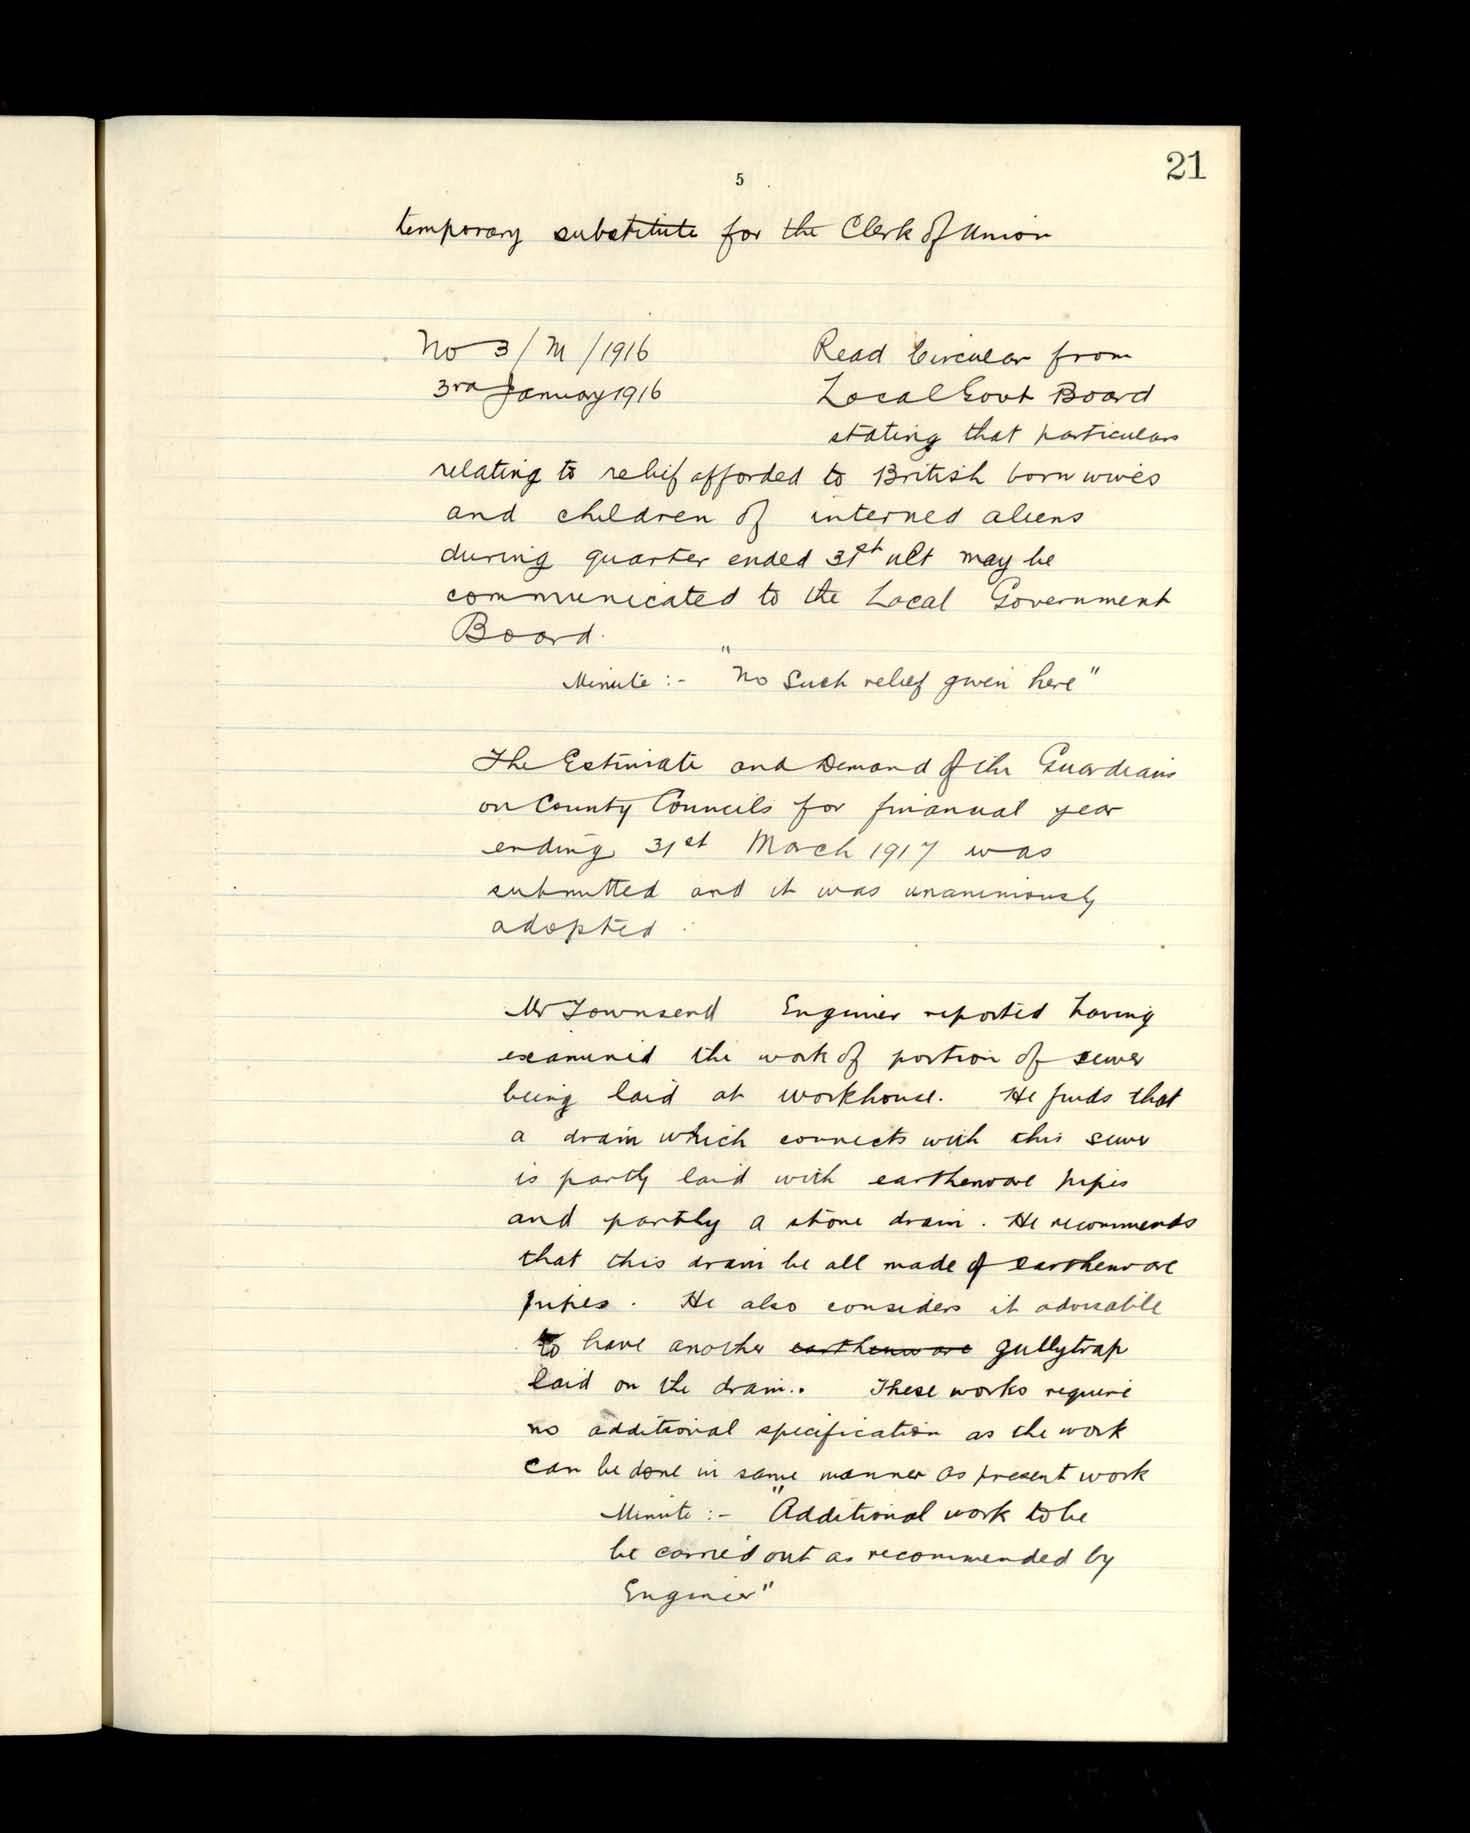 21
5
temporary substitute for the Clerk of Union
No 3/M/1916
3rd January 1916
Read Circular from
Local Govt Board
stating that particulars
relating to relief afforded to British born wives
and children of interned aliens
during quarter ended 31st ult may be
communicated to the Local Government
Board.
Minute :- "No Such relief given here"
The Estimate and Demand of the Guardians
on County Councils for financial year
ending 31st March 1917 was
submitted and it was unanimously
adopted.
Mr Townsend Engineer reported having
examined the work of portion of sewer
being laid at workhouse. He finds that
a drain which connects with this sewer
is partly laid with earthenware pipes
and partly a stone drain. He recommends
that this drain be all made of earthenware
pipes. He also considers it advisable
to have another earthenware gullytrap
laid on the drain.. These works require
no additional specification as the work
can be done in same manner as present work
Minute :- "Additional work to be
be carried out as recommended by
Engineer"